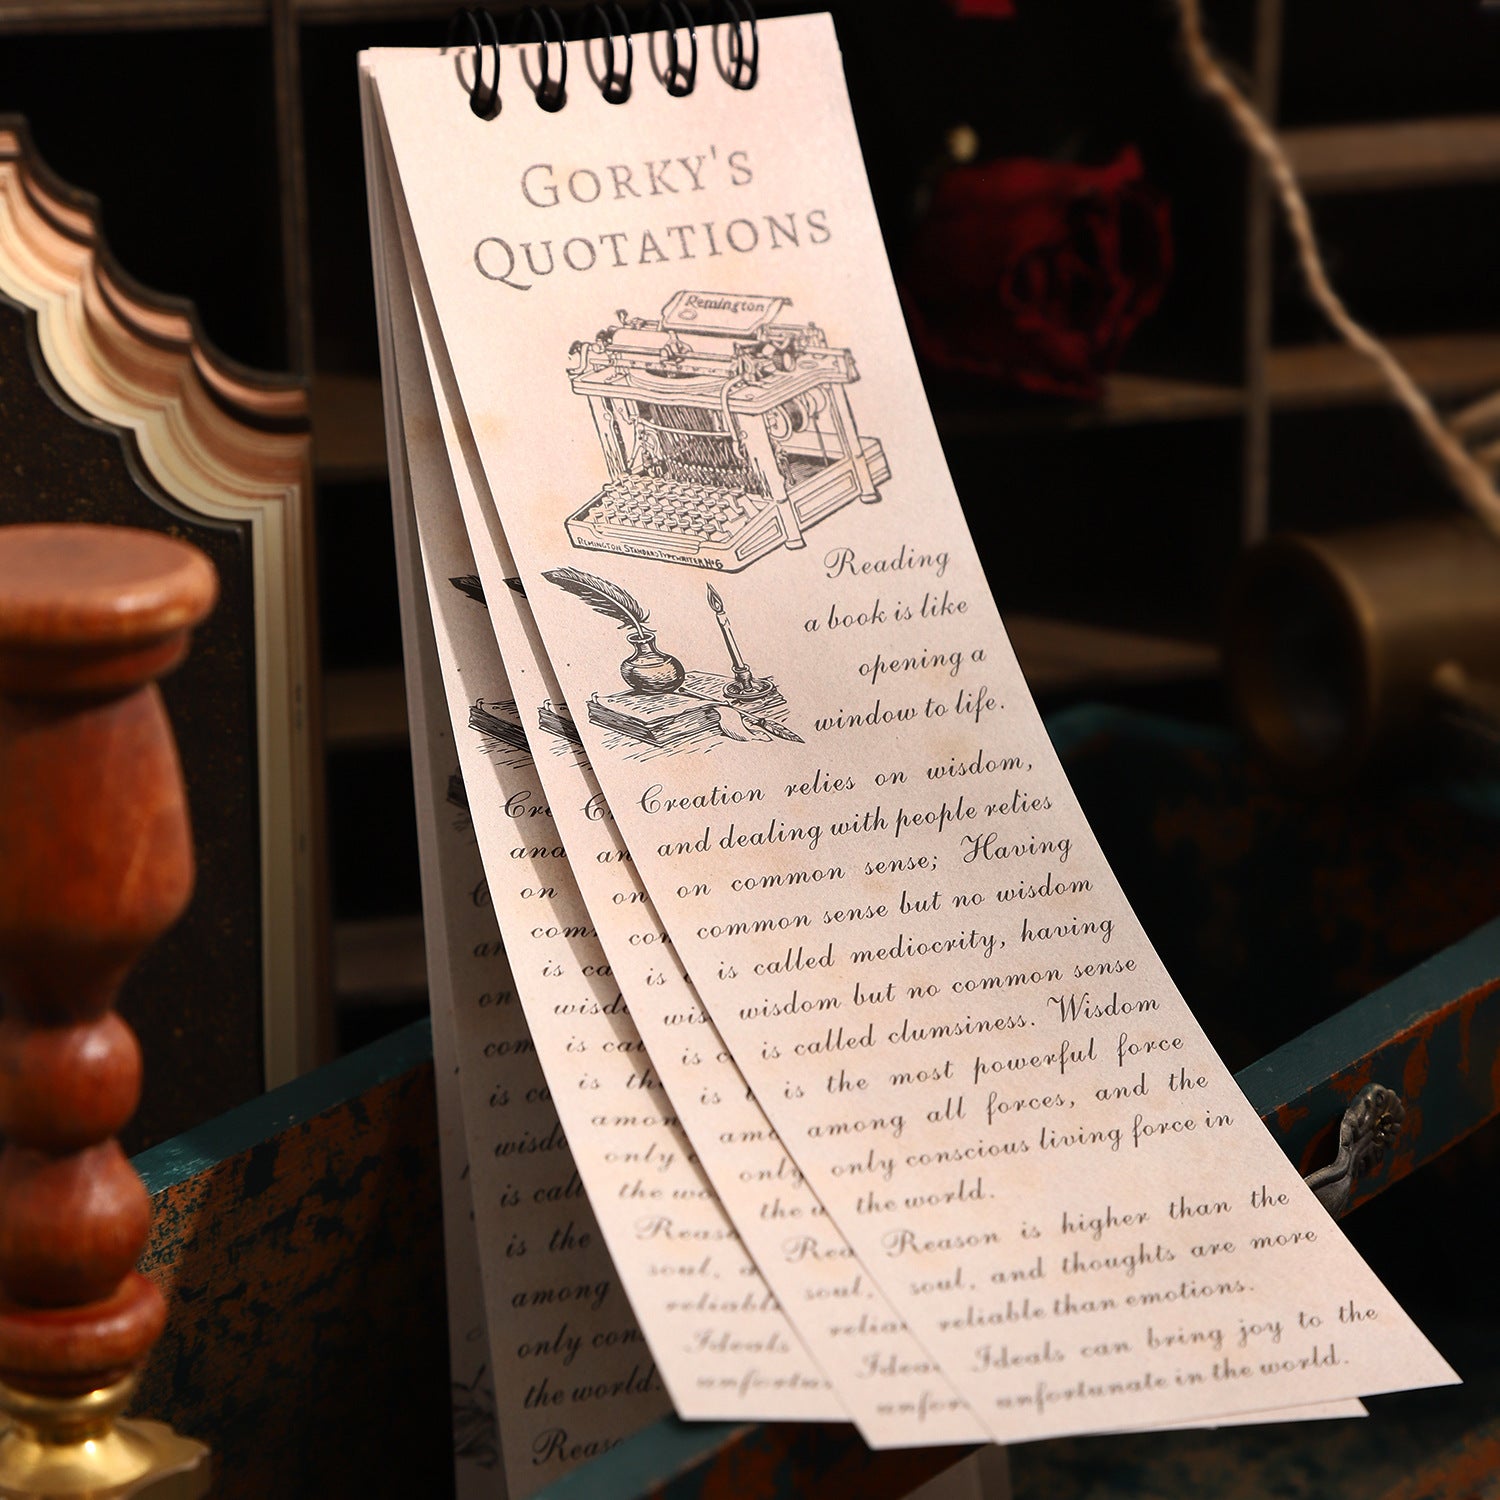 GORKY'S
QUOTATIONS
Remington
REMINGTON STANDARD TYPEWRITER Nº6
Reading
a book is like
opening a
window to life.
Creation relies on wisdom,
and dealing with people relies
on common sense; Having
common sense but no wisdom
is called mediocrity, having
wisdom but no common sense
is called clumsiness. Wisdom
is the most powerful force
among all forces, and the
only conscious living force in
the world.
Reason is higher than the
soul, and thoughts are more
reliable than emotions.
Ideals can bring joy to the
unfortunate in the world.